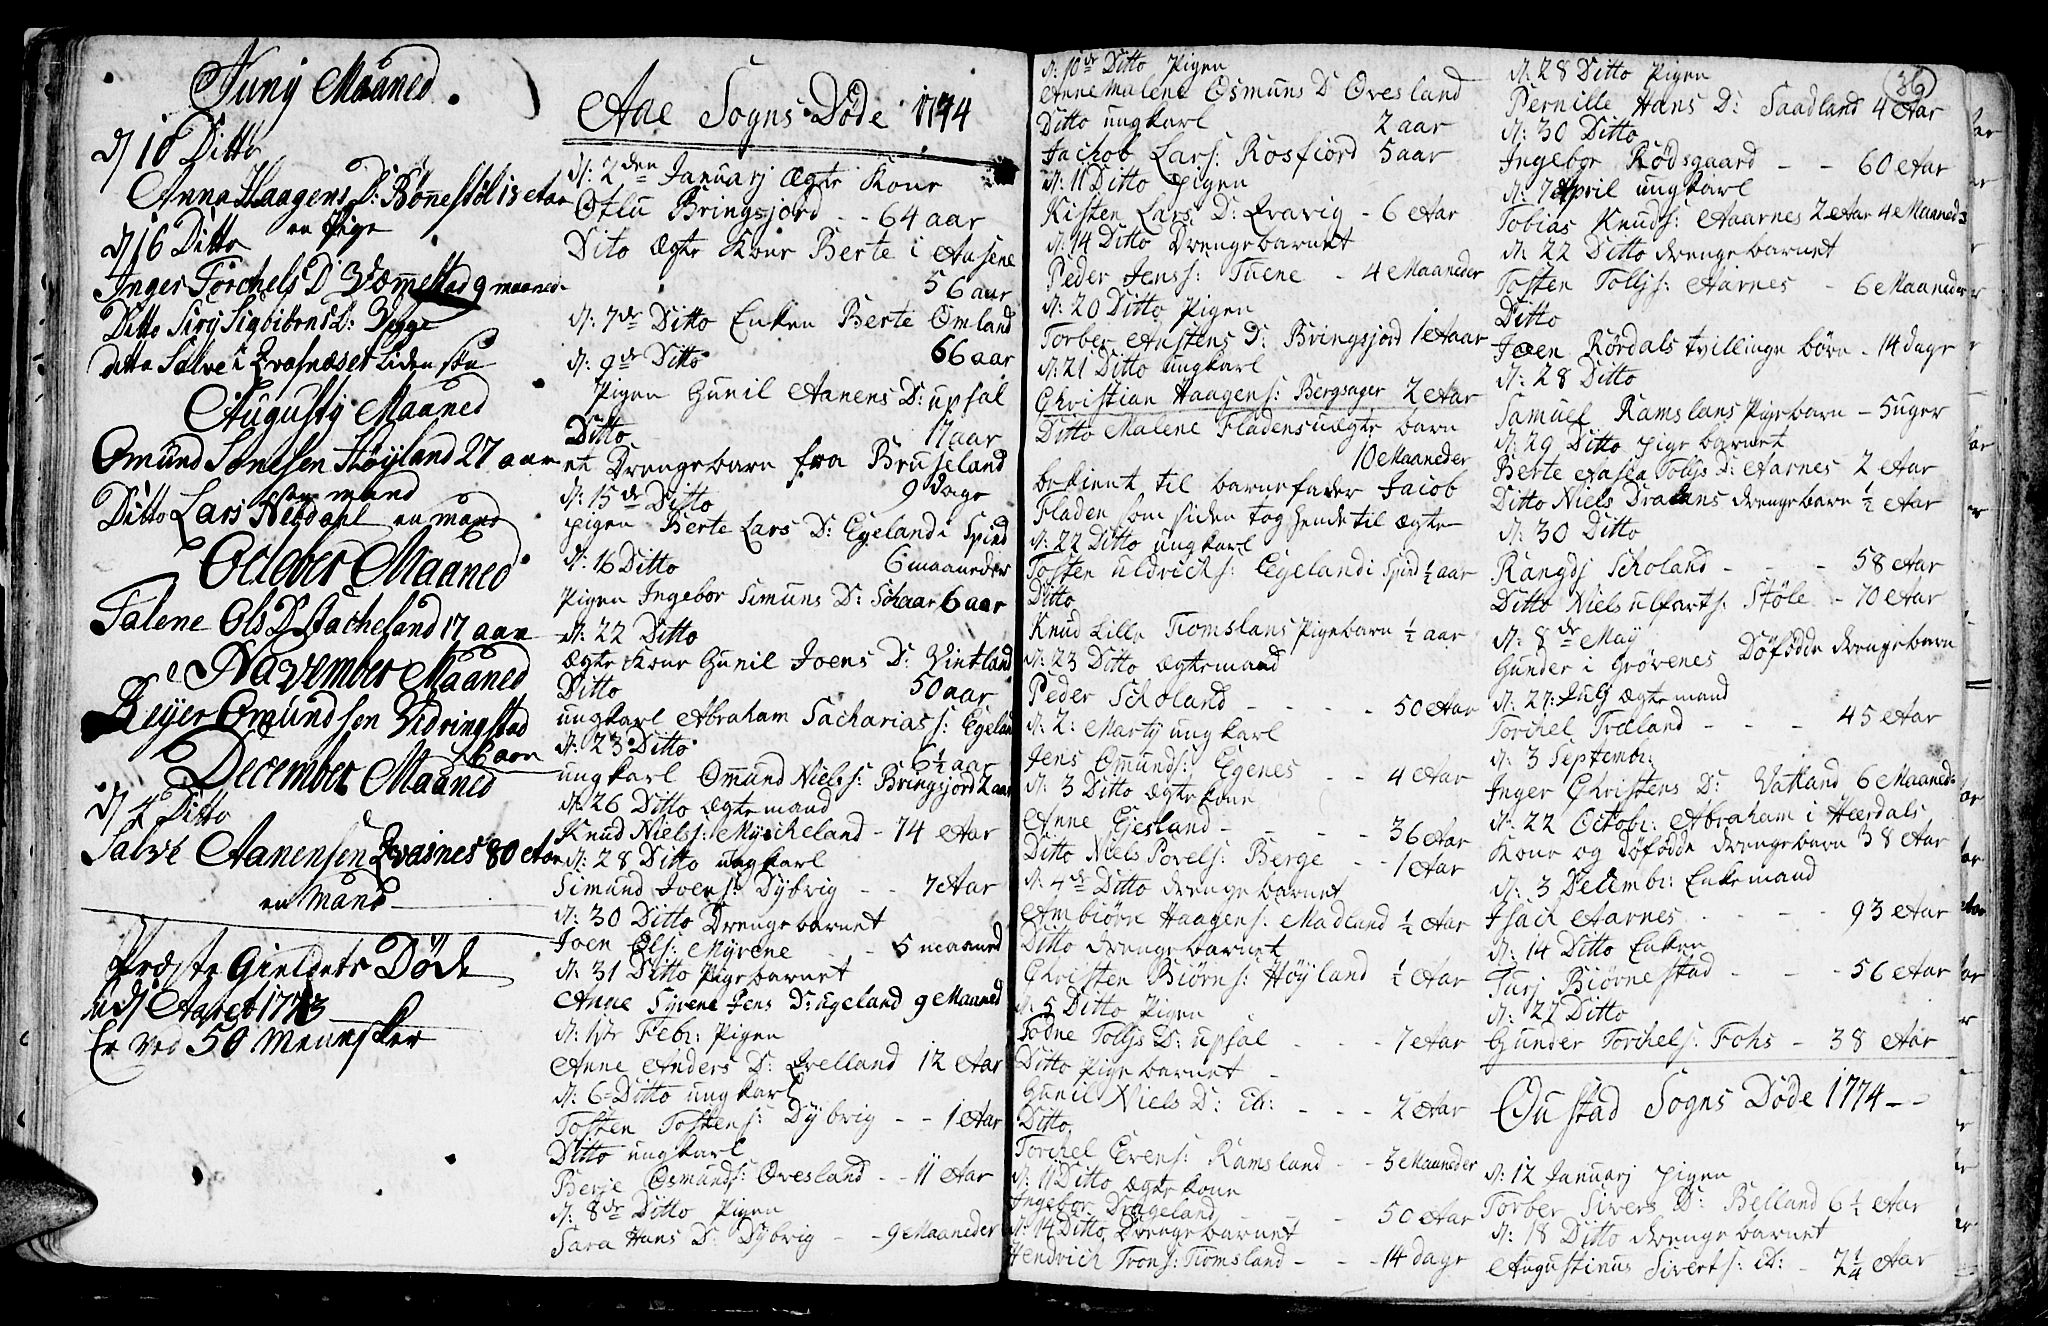 Junÿ Maaned
d 10 Ditto
Anna Haagens D: Rönestöl 13 Aar
en Pige
d 16 Ditto
Inger Torchels D Væmestad 9 maaned
Ditto Sirÿ Sigbiörns D: Vegge
ditto Salve i Qvasnæset liden sön
Augustÿ Maaned
Omund Sonesen Höyland 27 aar
mand
Ditto Lars Nebdael en mand
October Maaned
Talene Ols D Stacheland 17 aar
November Maaned
Reÿer Omundsen Vidringstad
16 aar
December Maaned
d 4 Ditto
Salve Aanensen Qvasnes 80 Aar
en Mand
Præste Gieldets Döde
udj Aaret 1773
Er ved 50 Mennesker
Aae Sogns Döde 1774
d: 2den Januarj Ægte Kone
Otlu Bringsjord - - 64 aar
Dito Ægte Kone Berte i Aasene
56 aar
d: 7de Ditto Enken Berte Omland
66 aar
d: 9de Ditto
Pigen Gunil Aanens D: upsal
17 aar
Ditto
et Drengebarn fra Bruseland
9 dage
d: 15de Ditto
pigen Berte Lars D: Egeland i Spind
6 maaneder
d: 16 Ditto
Pigen Ingebor Simuns D: Schaar 6 aar
d: 22 Ditto
Ægte Kone Gunil Joens D: Vintland
50 aar
Ditto
ungkarl Abraham Sacharias s: Egelan
6½ aar
d: 23 Ditto
ungkarl Omund Niels s: Bringsjord 2 aar
d: 26 Ditto Ægtemand
Knud Niels s: Myscheland - 74 Aar
d: 28 Ditto ungkarl
Simund Joens s: Dÿbvig - - 7 Aar
d: 30 Ditto Drengebarnet
Joen Ols s: Myrene - - 5 maaned
d: 31 Ditto Pigebarnet
Anne Sirene Jens D: ugeland 9 Maaned
d: 1ste Febr: Pigen
Anne Anders D: Qvelland 12 Aar
d: 6 Ditto ungkarl
Tosten Tostens s: Dÿbvig - - 1 Aar
Ditto ungkarl
Berje Osmunds s: Ovesland - - 11 Aar
d: 8de Ditto Pigen
Sara Hans D: Dÿbvig - - 9 Maaneder
d: 10de Ditto Pigen
Anne Malene Osmuns D Ovesland
2 aar
Ditto ungkarl
Jachob Lars s: Rosfiord 5 aar
d: 11 Ditto pigen
Kisten Lars D: Qvavig - 6 Aar
d: 14 Ditto Drengebarnet
Peder Jens s: Tuene - 4 Maaneder
d: 20 Ditto Pigen
Torber Austens D: Bringsjord 1 Aar
d: 21 Ditto ungkarl
Christian Haagens s: Bergsager 2 Aar
Ditto Malene Fladens uægte barn
10 Maaneder
bekient til barnefader Jacob
Fladen som siden tog hende til ægte
d: 22 Ditto ungkarl
Tosten Uldrich s: Egeland i Spind ½ aar
Ditto
Knud Lille Tromslans Pigebarn ½ aar
d: 23 Ditto Ægtemand
Peder Scholand - - - - 50 Aar
d: 2: Martÿ ungkarl
Jens Omunds s: Egenes - - 4 Aar
d: 3 Ditto Ægte kone
Anne Gjesland - - - - 36 Aar
Ditto Niels Povels s: Berge - - 1 Aar
d: 4de Ditto drengebarnet
Ambiörn Haagens s: Madland ½ Aar
Ditto drengebarnet
Christen Biörns s: Höÿland ½ Aar
d: 5 Ditto Pigen
Todne Tolljs D: upsal - - - 7 Aar
Ditto Pigebarnet
Gunil Niels D: ib: - - - 2 Aar
Ditto
Torchel Evens s: Ramsland - - 3 Maaneder
d: 11 Ditto Ægte kone
Ingebor Drageland - - - 50 Aar
d: 14 Ditto Drengebarnet
Hendrich Trons s: Tromsland - - - 14 dage
36
d: 28 Ditto Pigen
Pernille Hans D: Saadland 4 Aar
d: 30 Ditto
Ingebor Rödsgaard - - 60 Aar
d: 7 April ungkarl
Tobias Knuds s: Aaarnes 2 Aar 4 Maaned:
d: 22 Ditto drengebarnet
Tosten Tolljs s: Aarnes - 6 Maaneder
Ditto
Joen Rördals tvillinge börn - 14 dage
d: 28 Ditto
Samuel Ramslans Pigebarn - 5 uger
d: 29 Ditto pige barnet
Berte Aasen Tolljs D: Aarnes 2 Aar
Ditto Niels Dralans drengebarn ½ Aar
d: 30 Ditto
Rangdj Scholand - - - 58 Aar
Ditto Niels Ulfarts s: Stöle - 70 Aar
d: 8de Maÿ
Gunder i Grövenes Döfödde drengebarn
d: 27: Julÿ Ægtemand
Torchel Træland - - - 45 Aar
d: 3 Septembr:
Inger Christens D: Vatland 6 Maaned:
d: 22 Octobr: Abraham i Hærdals
Kone og Döfödde drengebarn 38 Aar
d: 3 Decembr: Enkemand
Isach Aarnes - - - - 93 Aar
d: 14 Ditto Enken
Turj Biörnestad - - - 56 Aar
d: 22 Ditto
Gunder Torchels s: Fohs - 38 Aar
Oustad Sogns Döde 1774 - -
d: 12 Januarj pigen
Torber Sivers D: Belland 6½ Aar
d: 18 Ditto drengebarnet
Augustinus Siverts s: ib: - 2¼ Aar